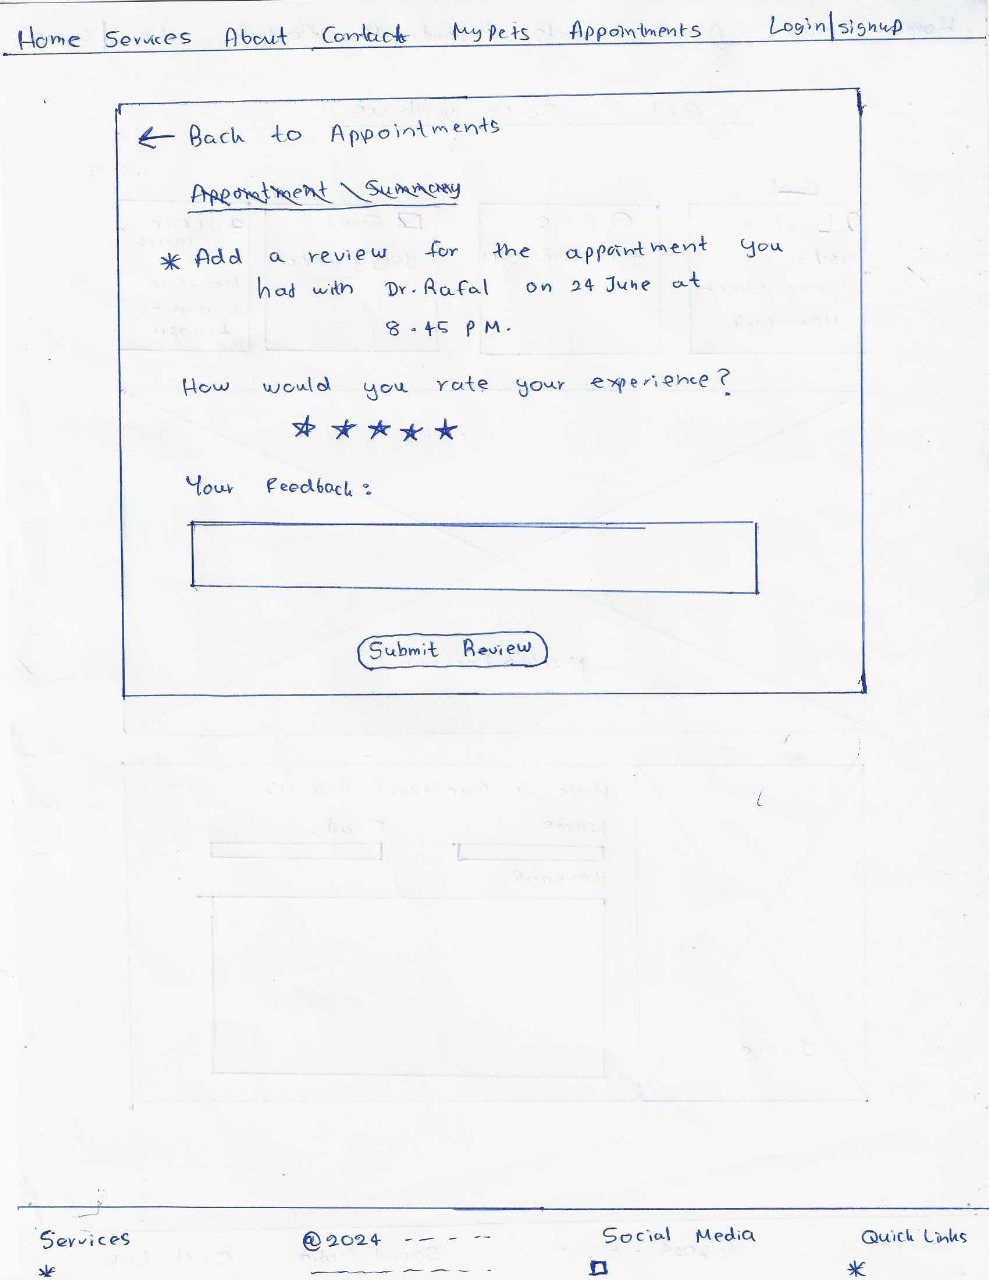 Home Services About Contact My Pets Appointments Login/signup
← Back to Appointments
Appointment Summary
* Add a review for the appointment you
had with Dr. Rafal on 24 June at
8.45 PM.
How would you rate your experience?
Your Feedback:
Submit Review
Services @2024 Social Media Quick Links